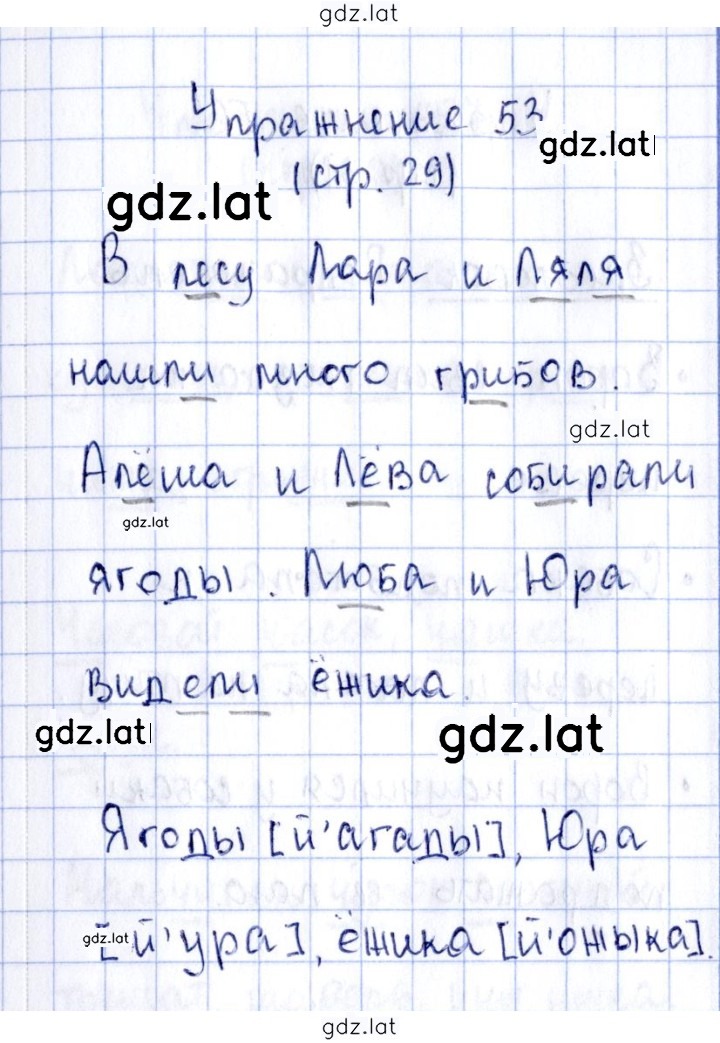 gdz.lat
Упражнение 53
gdz.lat
(стр. 29)
gdz.lat
В лесу Лара и Ляля
нашли много грибов.
gdz.lat
Алёша и Лёва собирали
gdz.lat
ягоды. Люба и Юра
видели ёжика.
gdz.lat
gdz.lat
Ягоды [й'агады], Юра
gdz.lat
[й'ура], ёжика [й'ожыка].
gdz.lat